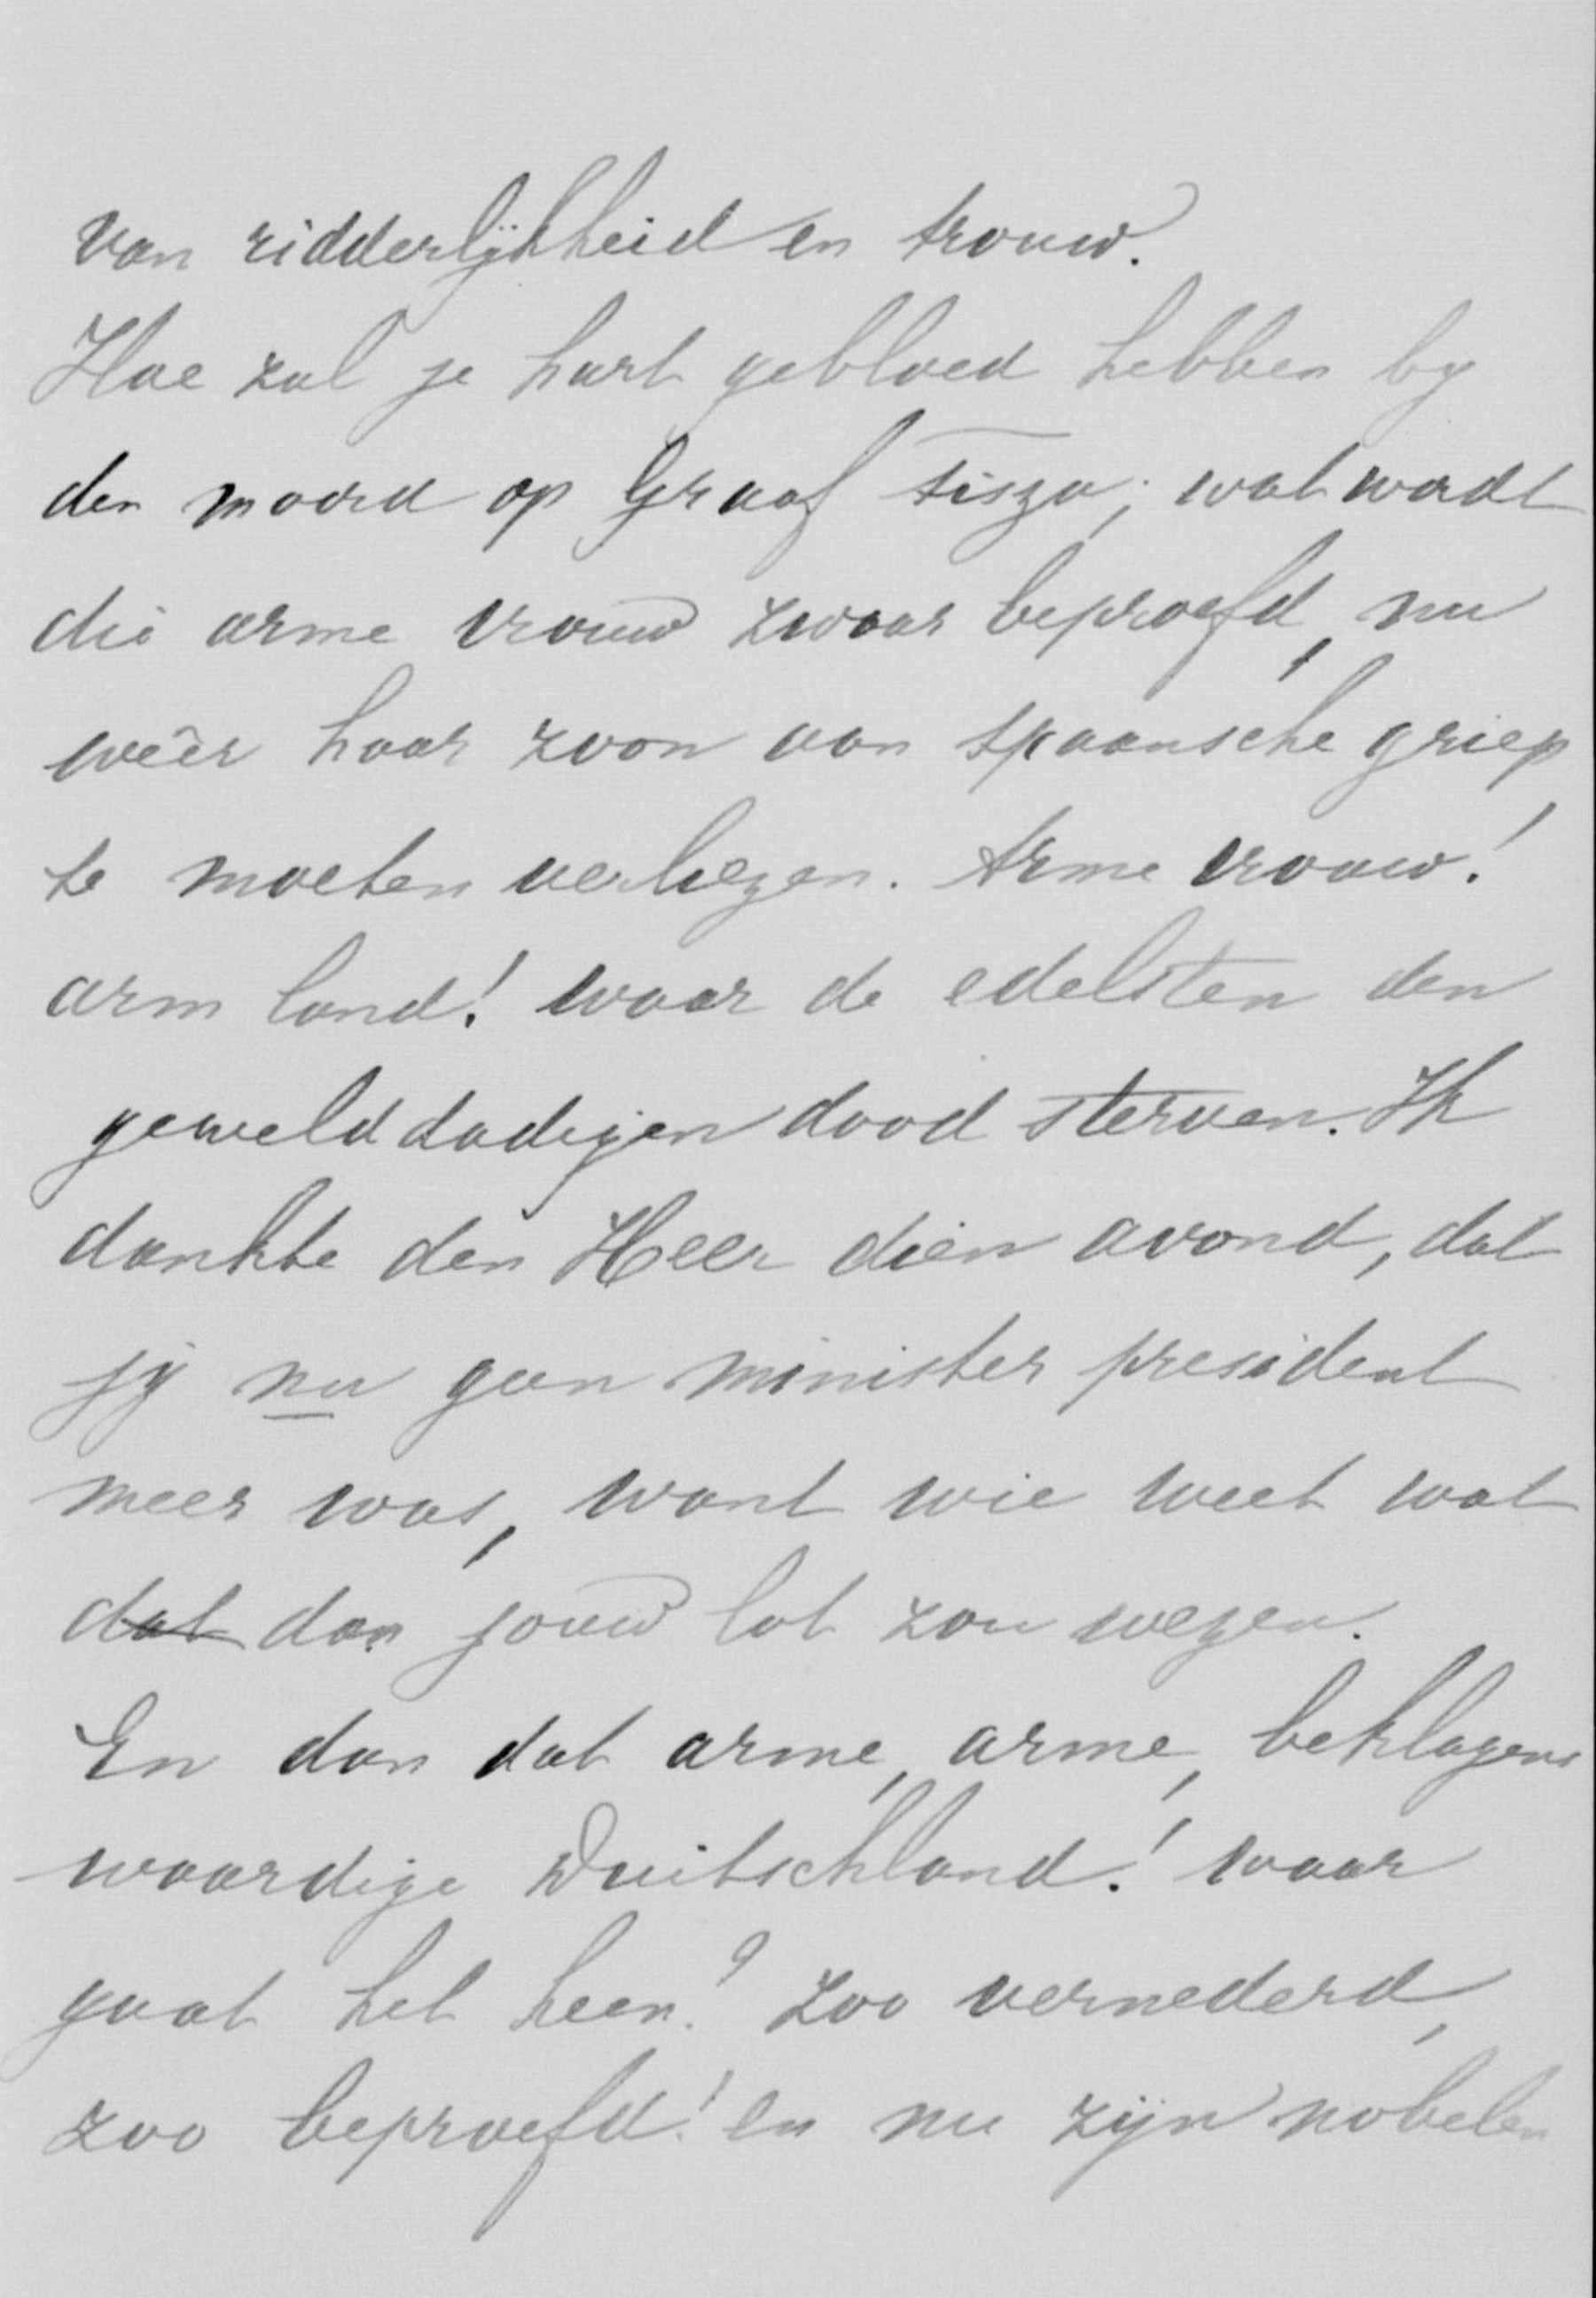 van ridderlijkheid en trouw.
Hoe zal je hart gebloed hebben by
den moord op Graaf Tisza; wat wordt
die arme vrouw zwaar beproefd, nu
weêr haar zoon aan spaansche griep
te moeten verliezen. Arme vrouw!
arm land! waar de edelsten den
gewelddadigen dood sterven. Ik
dankte den Heer dien avond, dat
jij nu geen minister president
meer was, want wie weet wat
dat dan jouw lot zou wezen.
En dan dat arme, arme, beklagens
waardige Duitschland! waar
gaat het heen? Zoo vernederd,
zoo beproefd! en nu zijn nobelen